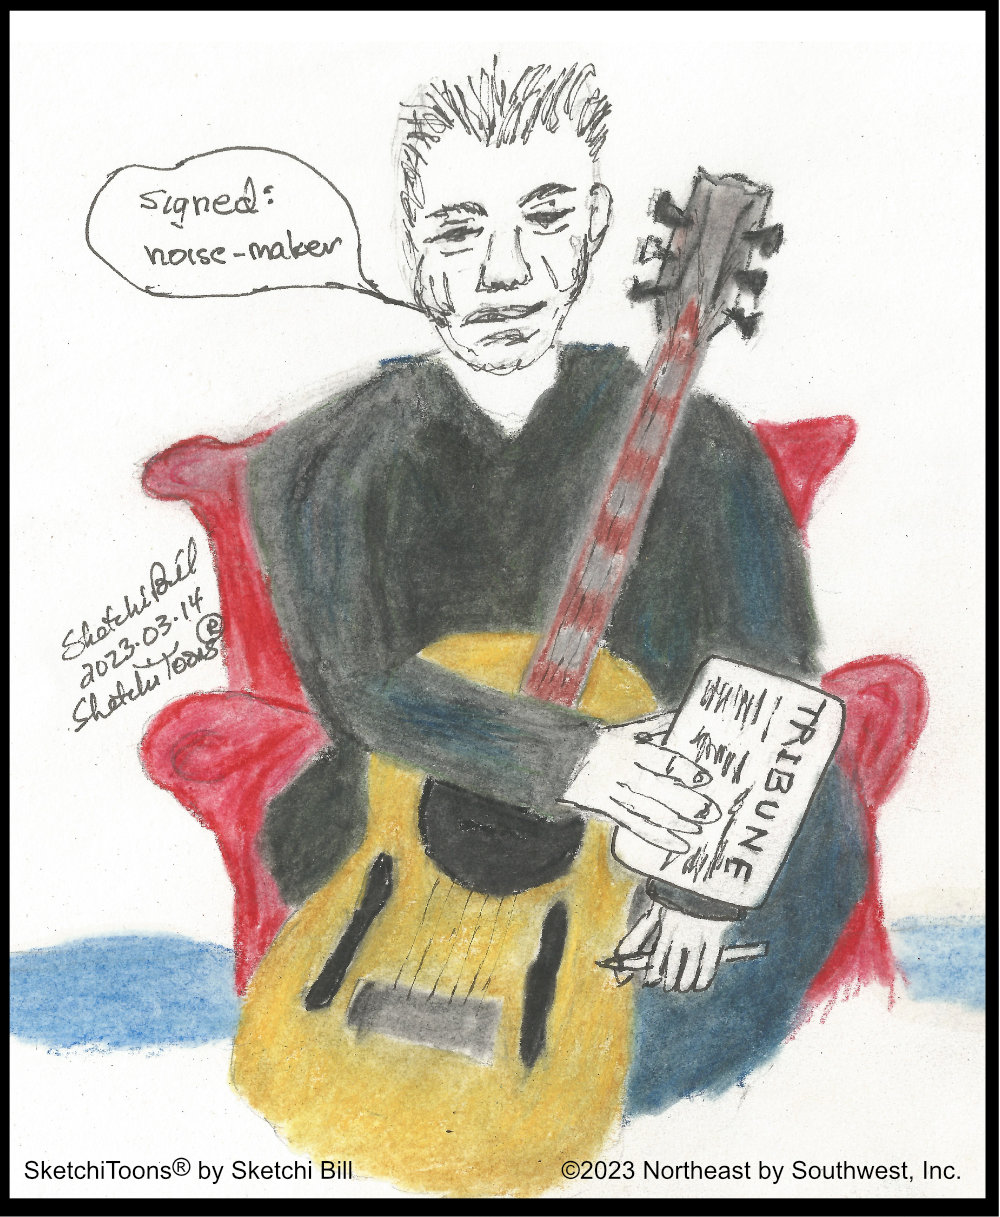 signed:
noise-maker
SketchiBill
2023.03.14
SketchiToons®
TRIBUNE
SketchiToons® by Sketchi Bill
©2023 Northeast by Southwest, Inc.